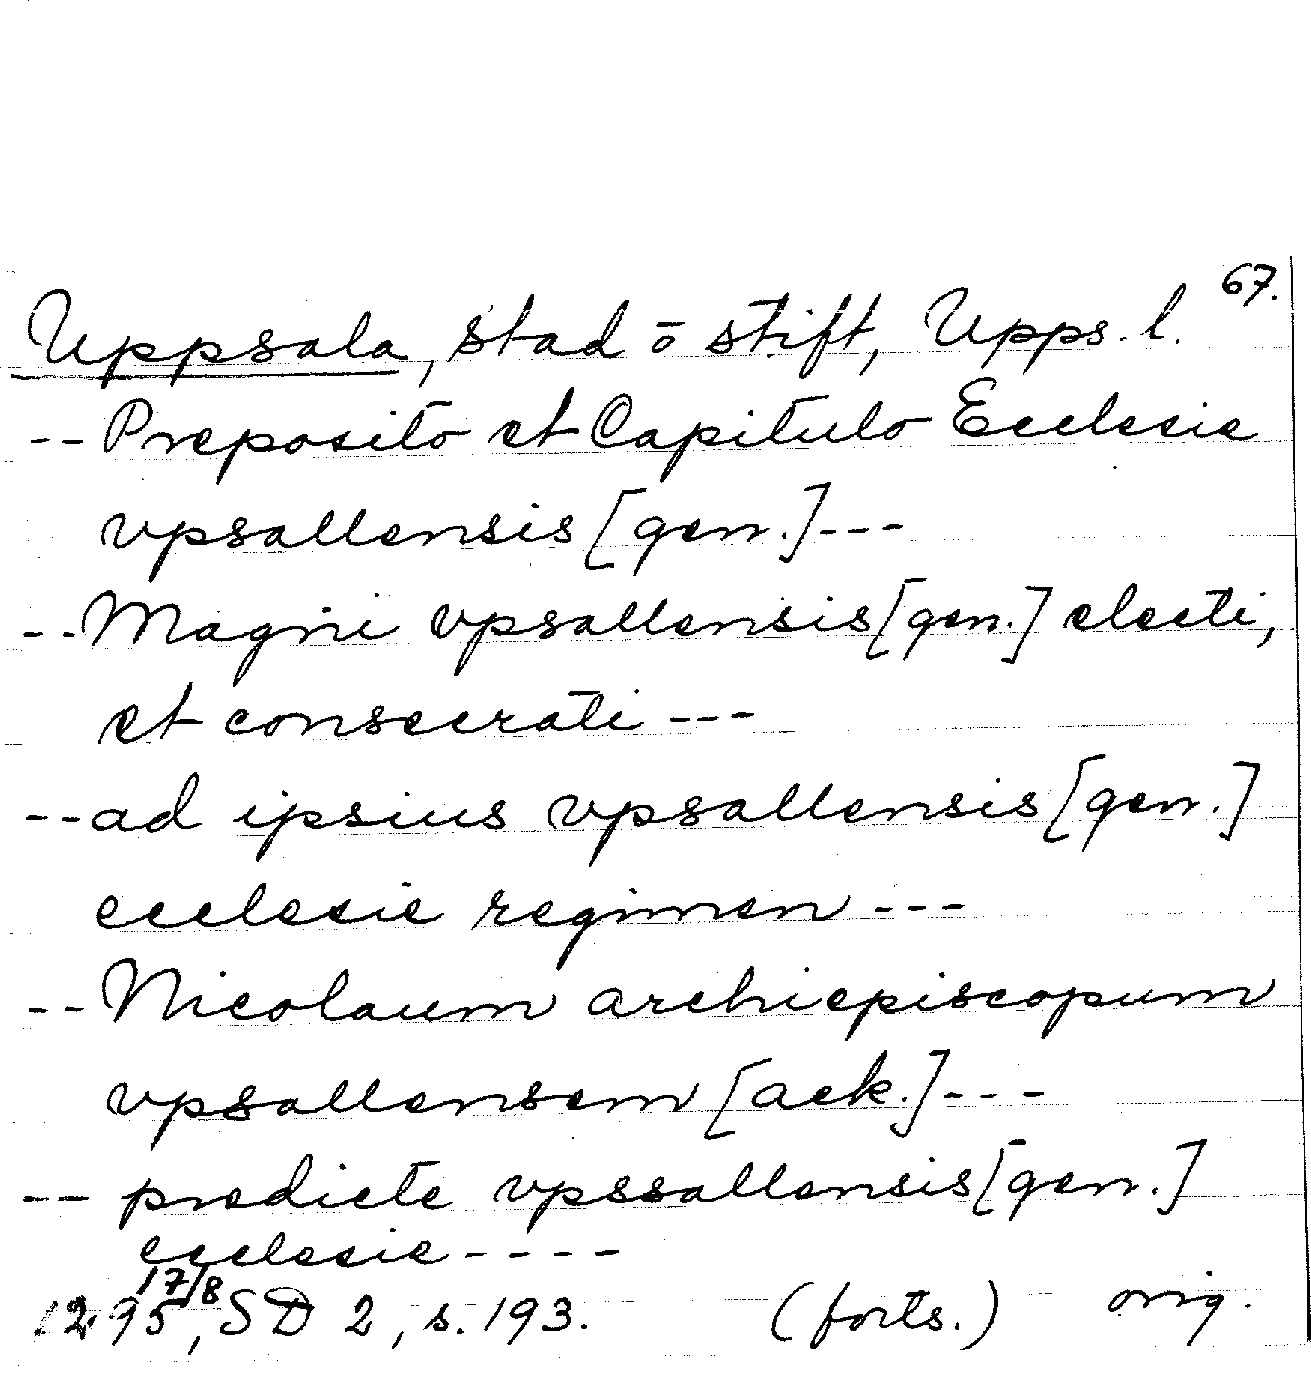 67.
Uppsala, stad o stift, Upps. l.
-- Preposito et Capitulo Ecclesie
vpsallensis [gen.] ---
-- Magni vpsallensis [gen.] electi,
et consecrati ---
-- ad ipsius vpsallensis [gen.]
ecclesie regimen ---
-- Nicolaum archiepiscopum
vpsallensem [ack.] ---
-- predicte vpssallensis [gen.]
ecclesie ----
1295 17/8, SD 2, s. 193. (forts.) orig.